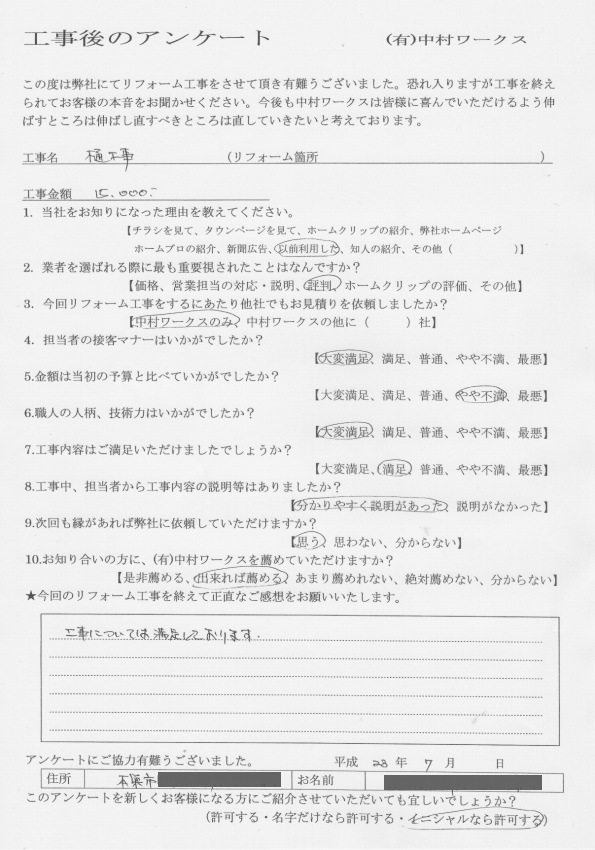 工事後のアンケート　(有)中村ワークス
この度は弊社にてリフォーム工事をさせて頂き有難うございました。恐れ入りますが工事を終え
られてお客様の本音をお聞かせください。今後も中村ワークスは皆様に喜んでいただけるよう伸
ばすところは伸ばし直すべきところは直していきたいと考えております。
工事名　樋工事　(リフォーム箇所　)
工事金額　15.000.-
1. 当社をお知りになった理由を教えてください。
【チラシを見て、タウンページを見て、ホームクリップの紹介、弊社ホームページ
ホームプロの紹介、新聞広告、以前利用した、知人の紹介、その他（　）】
2. 業者を選ばれる際に最も重要視されたことはなんですか？
【価格、営業担当の対応・説明、評判、ホームクリップの評価、その他】
3. 今回リフォーム工事をするにあたり他社でもお見積りを依頼しましたか？
【中村ワークスのみ、中村ワークスの他に（　）社】
4. 担当者の接客マナーはいかがでしたか？
【大変満足、満足、普通、やや不満、最悪】
5.金額は当初の予算と比べていかがでしたか？
【大変満足、満足、普通、やや不満、最悪】
6.職人の人柄、技術力はいかがでしたか？
【大変満足、満足、普通、やや不満、最悪】
7.工事内容はご満足いただけましたでしょうか？
【大変満足、満足、普通、やや不満、最悪】
8.工事中、担当者から工事内容の説明等はありましたか？
【分かりやすく説明があった、説明がなかった】
9.次回も縁があれば弊社に依頼していただけますか？
【思う、思わない、分からない】
10.お知り合いの方に、(有)中村ワークスを薦めていただけますか？
【是非薦める、出来れば薦める、あまり薦めれない、絶対薦めない、分からない】
★今回のリフォーム工事を終えて正直なご感想をお願いいたします。
工事については満足しております.
アンケートにご協力有難うございました。　平成 23 年 7 月　日
住所　市　お名前
このアンケートを新しくお客様になる方にご紹介させていただいても宜しいでしょうか？
（許可する・名字だけなら許可する・イニシャルなら許可する）